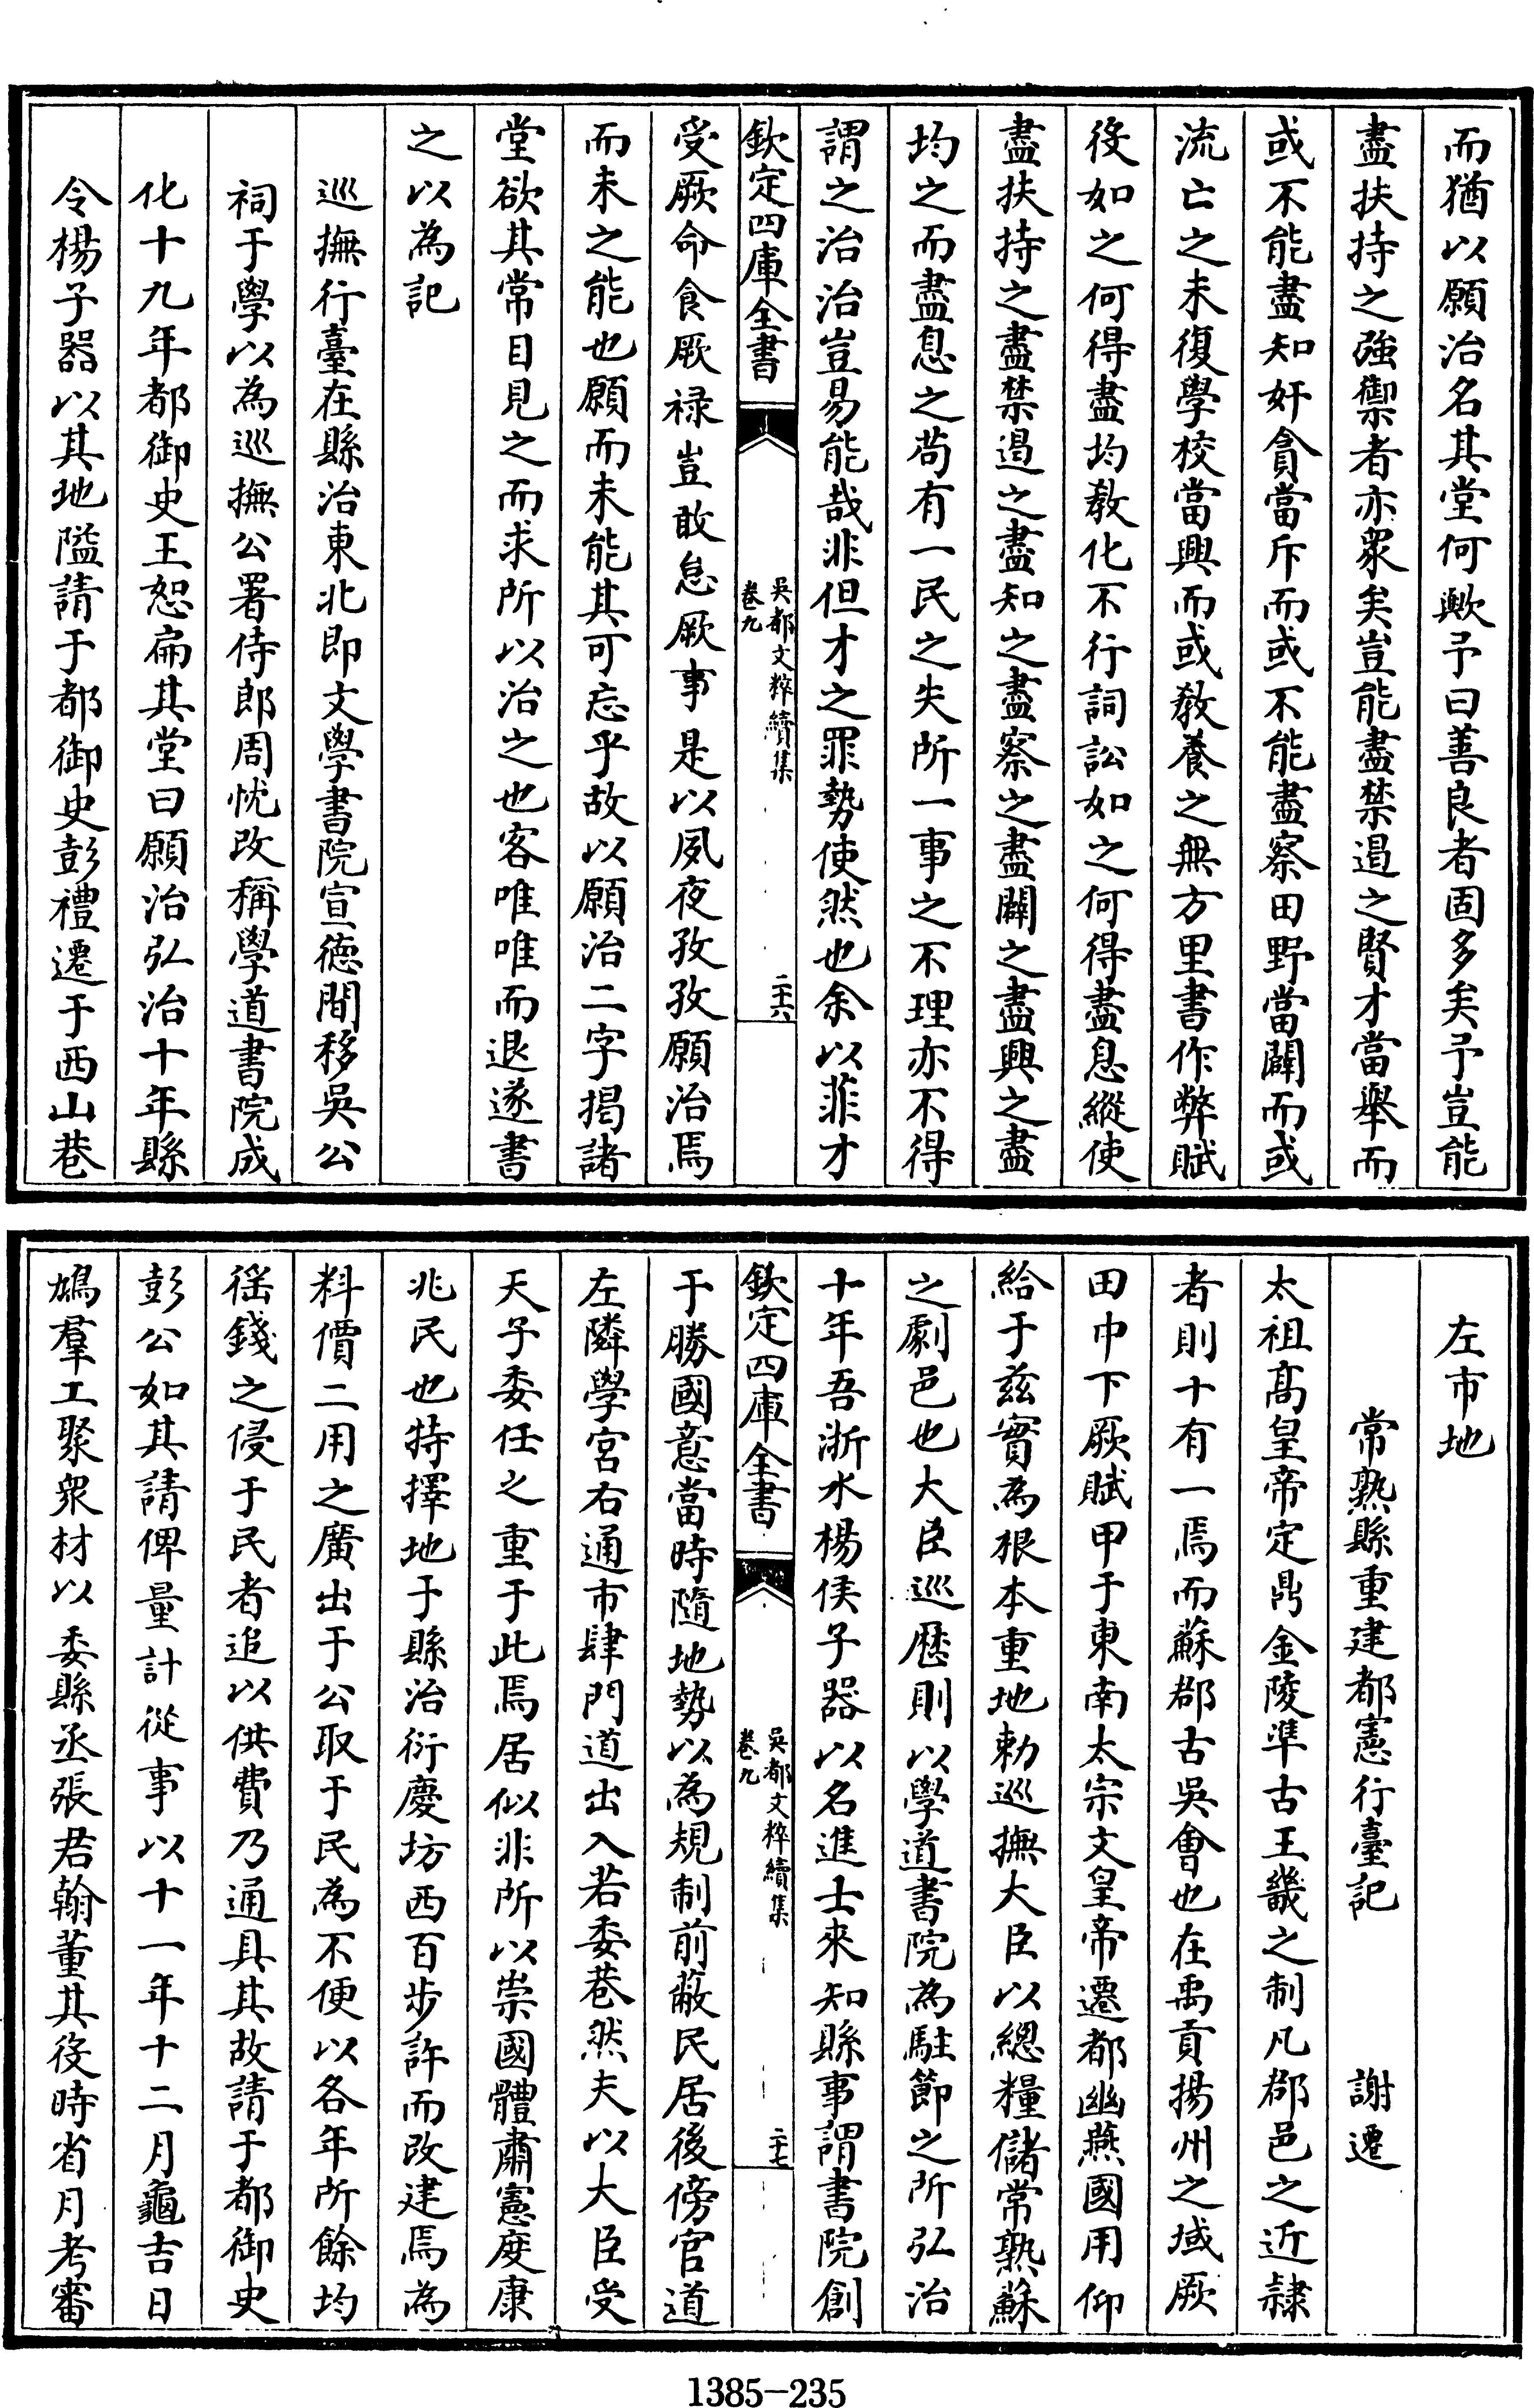 而猶以願治名其堂何歟予曰善良者固多矣予豈能
盡扶持之強禦者亦衆矣豈能盡禁遏之賢才當舉而
或不能盡知奸貪當斥而或不能盡察田野當闢而或
流亡之未復學校當興而或教養之無方里書作弊賦
役如之何得盡均教化不行詞訟如之何得盡息縱使
盡扶持之盡禁遏之盡知之盡察之盡闢之盡興之盡
均之而盡息之苟有一民之失所一事之不理亦不得
謂之治治豈易能哉非但才之罪勢使然也余以菲才
欽定四庫全書
吳都文粹續集
卷九
二十六
受厥命食厥禄豈敢怠厥事是以夙夜孜孜願治焉
而未之能也願而未能其可忘乎故以願治二字揭諸
堂欲其常目見之而求所以治之也客唯唯而退遂書
之以為記
巡撫行臺在縣治東北即文學書院宣德間移吳公
祠于學以為巡撫公署侍郎周忱改稱學道書院成
化十九年都御史王恕扁其堂曰願治弘治十年縣
令楊子器以其地隘請于都御史彭禮遷于西山巷
左市地
常熟縣重建都憲行臺記 謝遷
太祖髙皇帝定鼎金陵凖古王畿之制凡郡邑之近隷
者則十有一焉而蘇郡古吳會也在禹貢揚州之域厥
田中下厥賦甲于東南太宗文皇帝遷都幽燕國用仰
給于兹實為根本重地勅巡撫大臣以總糧儲常熟蘇
之劇邑也大臣巡歴則以學道書院為駐節之所弘治
十年吾浙水楊侯子器以名進士來知縣事謂書院創
欽定四庫全書
吳都文粹續集
卷九
二十七
于勝國意當時隨地勢以為規制前蔽民居後傍官道
左隣學宮右通市肆門道出入若委巷然夫以大臣受
天子委任之重于此焉居似非所以崇國體肅憲度康
兆民也特擇地于縣治衍慶坊西百步許而改建焉為
料價二用之廣出于公取于民為不便以各年所餘均
徭錢之侵于民者追以供費乃通具其故請于都御史
彭公如其請俾量計從事以十一年十二月龜吉日
鳩羣工聚衆材以委縣丞張君翰董其役時省月考審
1385-235